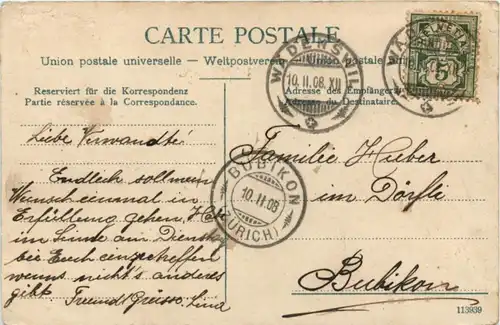 CARTE POSTALE
Union postale universelle — Weltpostverein — Union postale
Reserviert für die Korrespondenz
Partie réservée à la Correspondance.
Adresse des Empfängers
Adresse du Destinataire.
WÄDENSWIL
10.II.08.XII
5
BUBIKON
10.II.08
(ZÜRICH)
Liebe Verwandte
Endlich soll mein
Wunsch einmal in
Erfüllung gehen,
im Sinne am Dienstag
bei Euch einzutreffen
wenns nicht's anderes
gibt. Freundl Grüsse Lina
Familie Huber
im Dörfli
Bubikon
113939